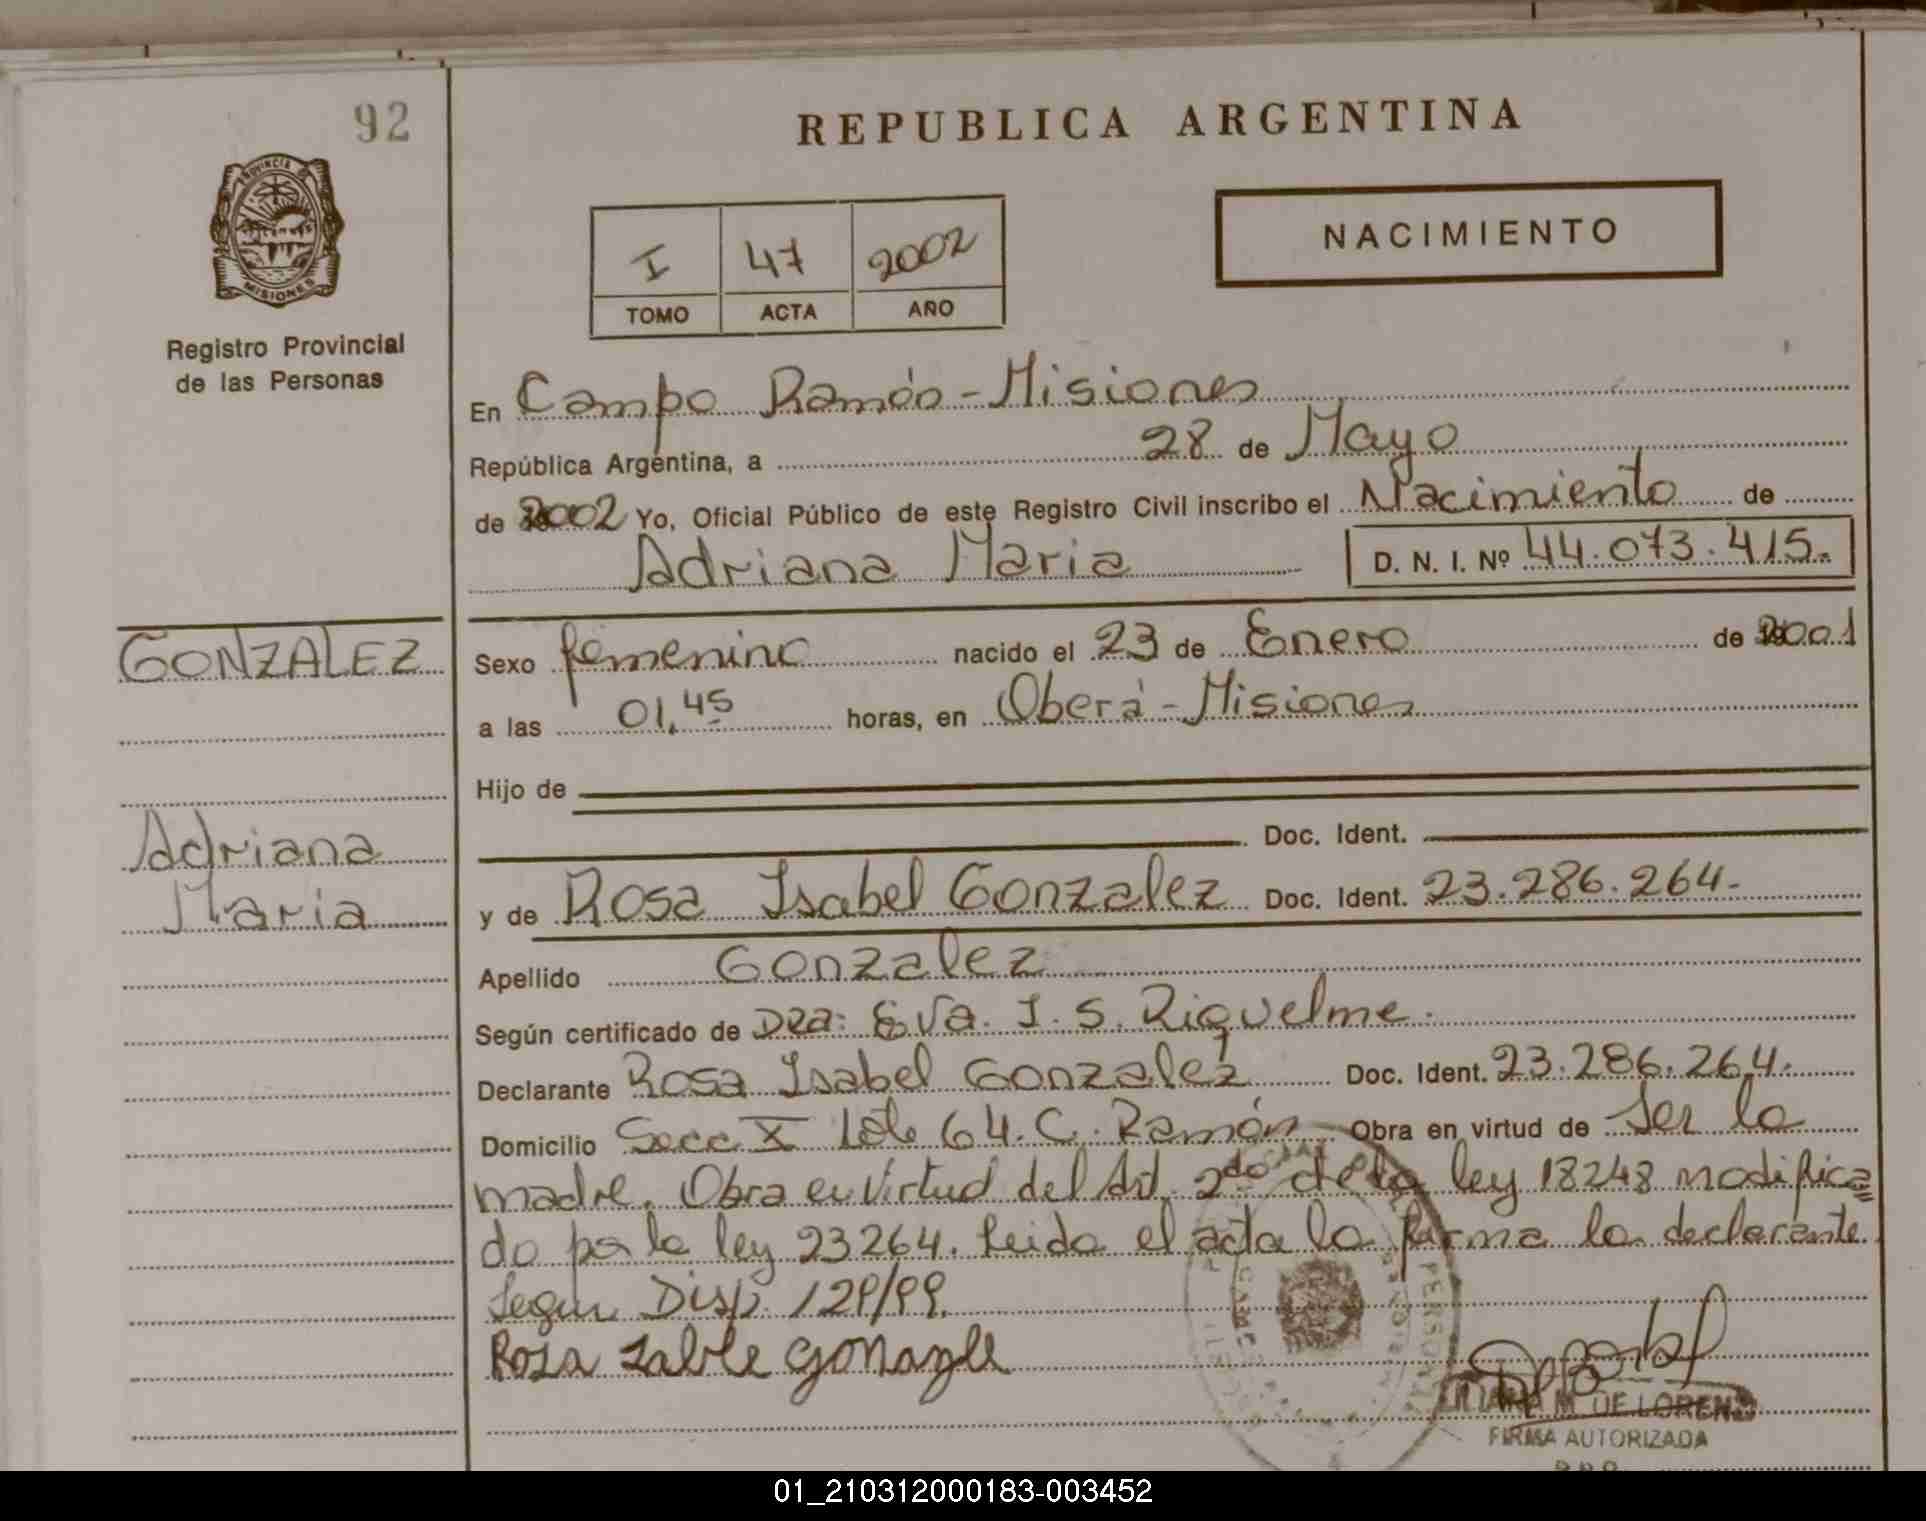 92
REPUBLICA ARGENTINA
PROVINCIA DE
MISIONES
Registro Provincial
de las Personas
I 47 2002
TOMO ACTA AÑO
NACIMIENTO
En Campo Ramón - Misiones
República Argentina, a 28 de Mayo
de 2002 Yo, Oficial Público de este Registro Civil inscribo el Nacimiento de
Adriana Maria D. N. I. Nº 44.073.415.
GONZALEZ
Sexo femenino nacido el 23 de Enero de 2001
a las 01,45 horas, en Oberá - Misiones
Hijo de
Doc. Ident.
Adriana
Maria
y de Rosa Isabel Gonzalez Doc. Ident. 23.286.264.
Apellido Gonzalez
Según certificado de Dra: Eva. I. S. Riquelme.
Declarante Rosa Isabel Gonzalez Doc. Ident. 23.286.264.
Domicilio Secc X Lote 64. C. Ramón Obra en virtud de Ser la
madre. Obra en Virtud del Art. 2do de la ley 18248 modifica=
do por la ley 23264. Leida el acta la firma la declarante
Segun Disp. 129/99.
Rosa Isable Gonazle
LILIANA M. DE LORENO
FIRMA AUTORIZADA
01_210312000183-003452